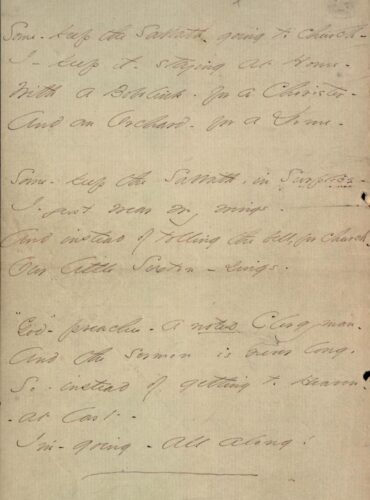 Some - keep the Sabbath, going to church -
I - keep it - staying at Home -
With a Bobolink - for a Chorister -
And an Orchard - for a Dome -
Some - keep the Sabbath, in Surplice -
I just wear my wings -
And instead of tolling the bell, for church -
Our little Sexton - sings -
"God" - preaches - a noted Clergyman -
And the sermon is never long,
So - instead of getting to Heaven -
- at last -
I'm - going - all along!